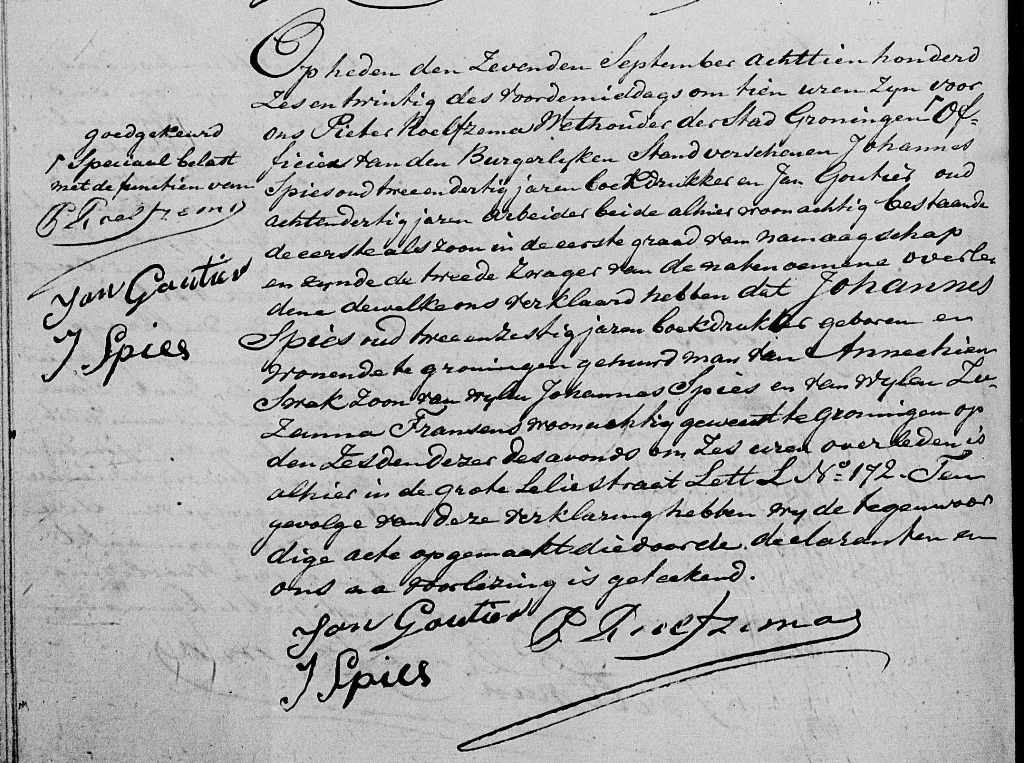 Op heden den Zevenden September achttien honderd
Zes en twintig des voordemiddags om tien uren Zyn voor
ons Pieter Roelfzema Wethouder der Stad Groningen ⌜ Of-
ficier van den Burgerlyken Stand verschenen Johannes
Spies oud twee en dertig jaren boekdrukker en Jan Goutier oud
achtendertig jaren arbeider beide alhier woonachtig bestaande
de eerste als zoon in de eerste graad van namaagschap
en zynde de tweede Zwager van de natenoemene overle
dene dewelke ons verklaard hebben dat Johannes
Spies oud twee en zestig jaren boekdrukker geboren en
wonende te groningen gehuurd man van Annechien
Swek Zoon van wylen Johannes Spies en van wylen Zu-
zanna Fransens woonachtig geweest te Groningen op
den Zesden dezer des avonds om Zes uren overleden is
alhier in de grote Leliestraat Lett L No. 172. Ten
gevolge van deze verklaring hebben wy de tegenwoor
dige acte opgemaakt die door de declaranten en
ons na voorlezing is geteekend.
Jan Goutier P Roelfzema
J Spies
goedgekeurd
⌜ Speciaal belast
met de functien van
P Roelfzema
Jan Goutier
J Spies